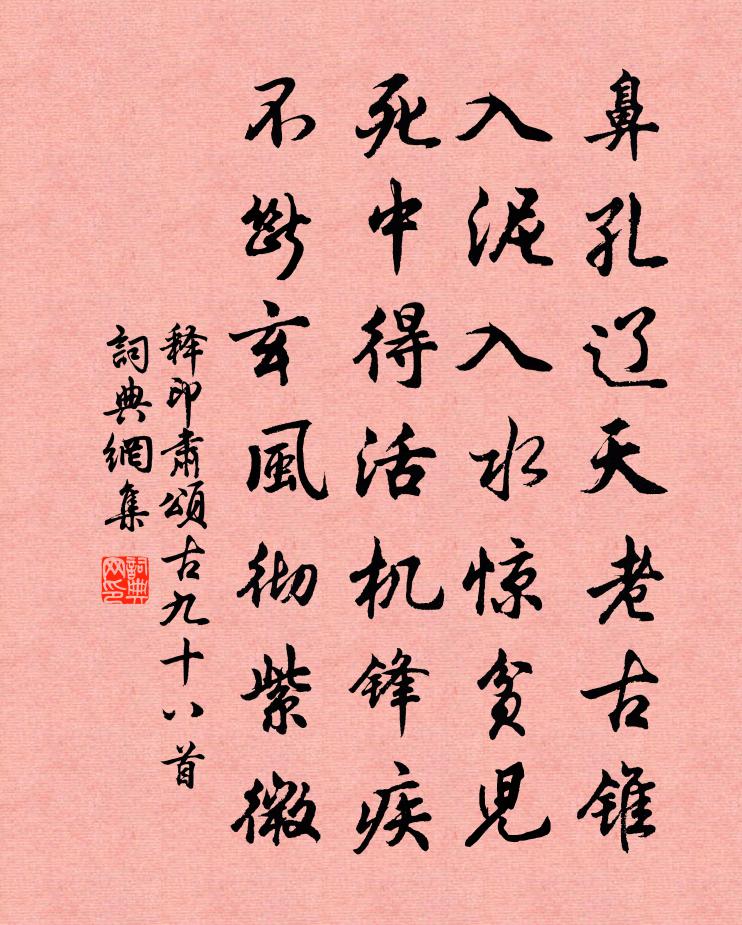 鼻孔辽天老古锥
入泥入水惊贫儿
死中得活机锋疾
不断玄風彻紫微
释印肃頌古九十八首
詞典網集
詞典网印